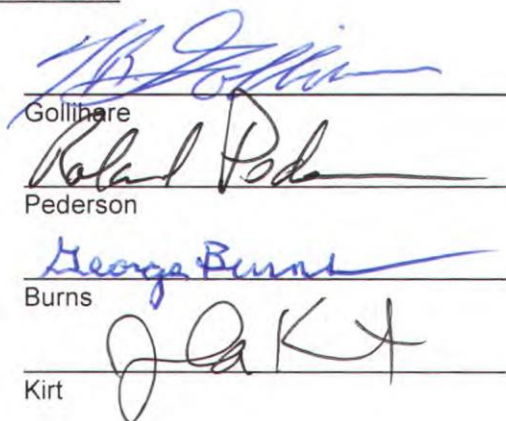 Gollihare
Roland Pederson
Pederson
George Burns
Burns
Kirt